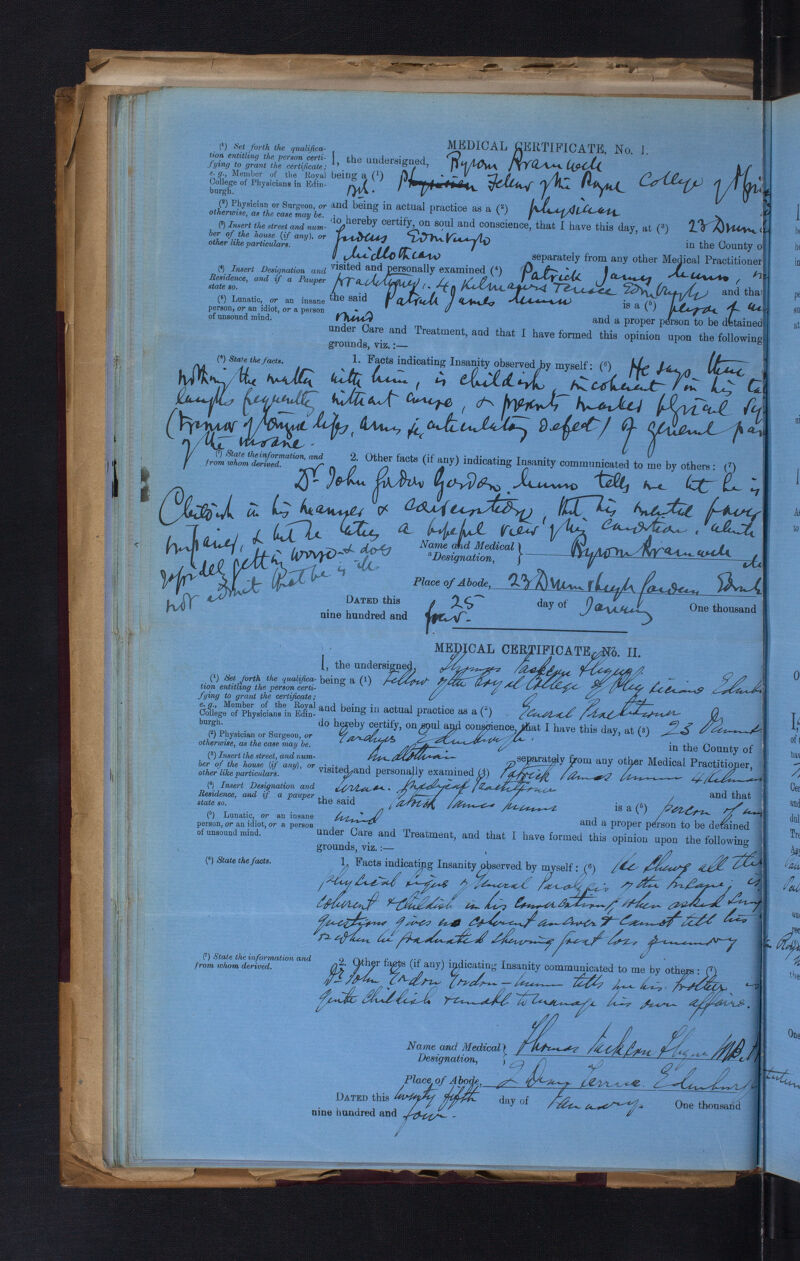 MEDICAL CERTIFICATE, No. I.
(¹) Set forth the qualifica-
tion entitling the person certi-
fying to grant the certificate;
e. g., Member of the Royal
College of Physicians in Edin-
burgh.
(²) Physician or Surgeon, or
otherwise, as the case may be.
(³) Insert the street and num-
ber of the house (if any), or
other like particulars.
(⁴) Insert Designation and
Residence, and if a Pauper
state so.
(⁵) Lunatic, or an insane
person, or an idiot, or a person
of unsound mind.
I, the undersigned, Byrom Bramwell
being a (¹) M.D. Physician Fellow of the Royal College of
and being in actual practice as a (²) physician
do hereby certify, on soul and conscience, that I have this day, at (³) 23
Gardens Edinburgh in the County o
Midlothian separately from any other Medical Practitioner
visited and personally examined (⁴) Patrick James Munro,
practitioner, 4 Kilmaurs Terrace Edinburgh and tha
the said Patrick James Munro is a (⁵) person of
mind and a proper person to be detained
under Care and Treatment, and that I have formed this opinion upon the following
grounds, viz. :—
(⁶) State the facts.
1. Facts indicating Insanity observed by myself: (⁶) He says there
nothing the matter with him, is childish, incoherent in his
laughs frequently without cause, & presents marked physical
(tremor of tongue lips, arms & articulatory defect) of general
of the insane.
(⁷) State the information, and
from whom derived.
2. Other facts (if any) indicating Insanity communicated to me by others: (⁷)
Dr John Gordon Gordon Munro tells me that he is
Childish in his manner & conversation, that his mental
impaired, & that he takes a hopeful view of his condition,
rapidly getting worse & does
not admit that he is ill
Name and Medical
Designation, Byrom Bramwell
Place of Abode, 23 Drumsheugh Gardens
DATED this 25 day of January One thousand
nine hundred and four.
MEDICAL CERTIFICATE, No. II.
(¹) Set forth the qualifica-
tion entitling the person certi-
fying to grant the certificate;
e. g., Member of the Royal
College of Physicians in Edin-
burgh.
(²) Physician or Surgeon, or
otherwise, as the case may be.
(³) Insert the street and num-
ber of the house (if any), or
other like particulars.
(⁴) Insert Designation and
Residence, and if a pauper
state so.
(⁵) Lunatic, or an insane
person, or an idiot, or a person
of unsound mind.
I, the undersigned, Thomas
being a (¹) Fellow of the Royal College of Physicians
and being in actual practice as a (²) General Practitioner
do hereby certify, on soul and conscience, that I have this day, at (³) 23
Gardens Edinburgh. in the County of
Midlothian separately from any other Medical Practitioner,
visited and personally examined (⁴) Patrick James Munro 4
Terrace. Medical Practitioner and that
the said Patrick James Munro is a (⁵) person of
mind and a proper person to be detained
under Care and Treatment, and that I have formed this opinion upon the following
grounds, viz. :—
(⁶) State the facts.
1. Facts indicating Insanity observed by myself: (⁶) He shows all the
physical signs of General Paralysis of the Insane,
coherent & childish in his conversation, when asked
questions gives no coherent answer & cannot tell his
or when he graduated showing great loss of memory
(⁷) State the information and
from whom derived.
2. Other facts (if any) indicating Insanity communicated to me by others: (⁷)
Dr John Gordon Gordon-Munro tells me his brother
quite childish & unable to manage his own affairs.
Name and Medical
Designation, Thomas
Place of Abode, 2 Terrace. Edinburgh
DATED this twenty fifth day of January One thousand
nine hundred and four.